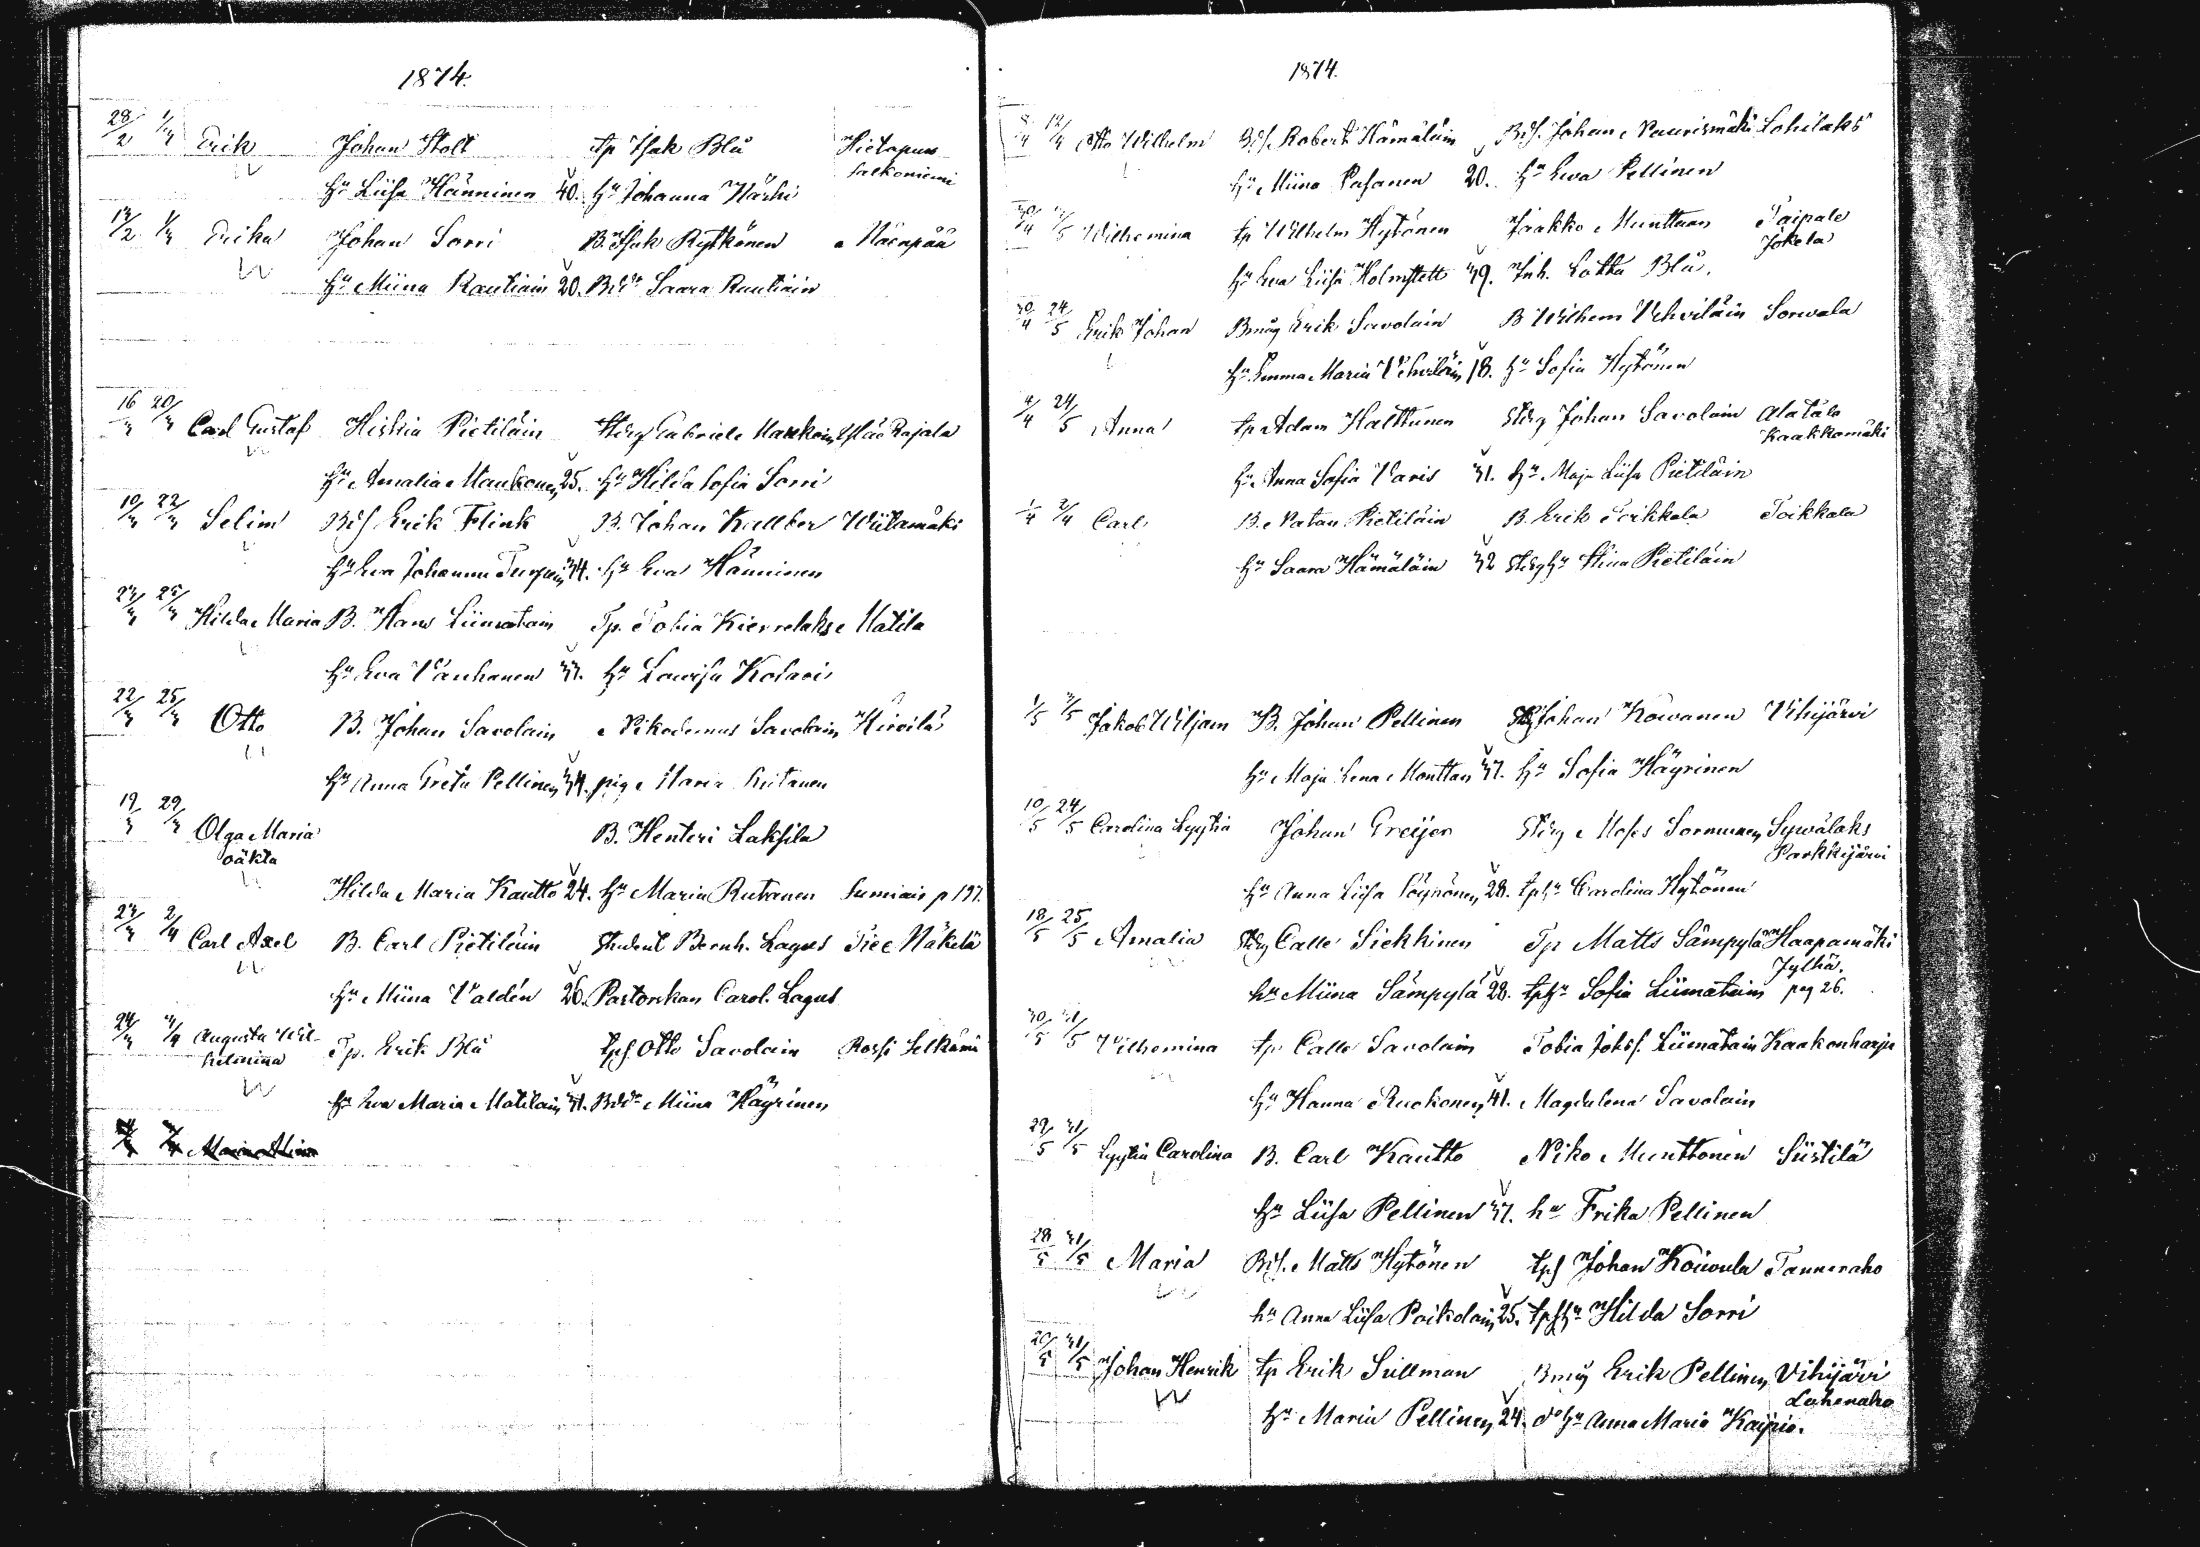 1874.
28/2 1/3 Erik Johan Stolt tp Isak Blå Hietapuro
Salkoniemi
hu Liisa Hänninen 40. hu Johanna Närhi
13/2 1/3 Erika Johan Sorri B. Isak Rytkönen Näenpää
hu Miina Rautiain 20. Bdr Saara Rautiain
16/3 20/3 Carl Gustaf Hiskia Pietiläin Stdrg Gabriel Maukoin Rajala
hu Amalia Maukonen 25. hu Hilda Sofia Sorri
10/3 22/3 Selim Bds Erik Flink B. Johan Kallber Wiitamäki
hu Eva Johanna 34. hu Eva Hänninen
23/3 25/3 Hilda Maria B. Hans Liimatain Tp. Tobia Kierrelaks Matila
hu Eva Vauhanen 37. hu Lowisa Kolari
22/3 25/3 Otto B. Johan Savolain Nikodemus Savolain Hirvilä
hu Anna Greta Pellinen 34. pig Maria
19/3 29/3 Olga Maria B. Henteri Laksila
oäkta
Hilda Maria Kautto 24. hu Maria Rutanen Sumiais p 197.
23/3 2/4 Carl Axel B. Carl Pietiläin Student Bernh. Lagus Piec Mäkelä
hu Miina Valdén 26. Pastorskan Carol. Lagus
24/3 3/4 Augusta Wil- Tp. Erik Blå tps Otto Savolain Rossi Selkämä
helmina
hu Eva Maria Matilain 31. Bdr Miina Häyrinen
1874.
8/4 12/4 Otto Wilhelm Bds. Robert Hämäläin Bds. Johan Naurismäki Lohilaks
hu Miina Pasanen 20. hu Eva Pellinen
30/4 3/5 Wilhemina tp Wilhelm Hytönen Jaakko Munttaan Taipale
Jokela
hu Eva Liisa Holmstett 39. Inh. Lotta Blå.
30/4 24/5 Erik Johan Bmåg Erik Savolain B Wilhem Vehviläin Sorvala
hu Emma Maria Vehviläin 18. hu Sofia Hytönen
4/4 24/5 Anna tp Adam Halttunen Stdrg Johan Savolain Alatalo
Kaakkomäki
hu Anna Sofia Varis 31. hu Maja Liisa Pietiläin
1/4 2/4 Carl B. Natan Pietiläin B. Erik Toikkala Toikkala
hu Saara Hämäläin 32 Stdrg hu Stina Pietiläin
1/5 3/5 Jakob Wiljam B. Johan Pellinen Johan Kowanen Vihijärvi
hu Maja Lena Monttan 37. hu Sofia Häyrinen
10/5 24/5 Carolina Lyytia Johan Greijer Stdrg Moses Sormunen Sywälaks
Parkkijärvi
hu Anna Liisa Pöyhönen 28. tphu Carolina Hytönen
18/5 25/5 Amalia Stdrg Calle Siekkinen Tp Matts Sämpylä Haapamäki
Jylhä.
hu Miina Sämpylä 28. tphu Sofia Liimatain pag 26.
30/5 31/5 Vilhemina tp Calle Savolain Tobia Johss. Liimatain Kaakonharju
hu Hanna Ruokonen 41. Magdalena Savolain
29/5 31/5 Lyytia Carolina B. Carl Kautto Niko Munttonen Siistilä
hu Liisa Pellinen 37. hu Frika Pellinen
28/5 31/5 Maria Bds. Matts Hytönen tps Johan Koiwula Tanneraho
hu Anna Liisa Poikolain 25. tpshu Hilda Sorri
20/5 31/5 Johan Henrik tp Erik Sillman Bmåg Erik Pellinen Vihijärvi
Lahenaho
hu Maria Pellinen 24. do hu Anna Maria Kaipio.